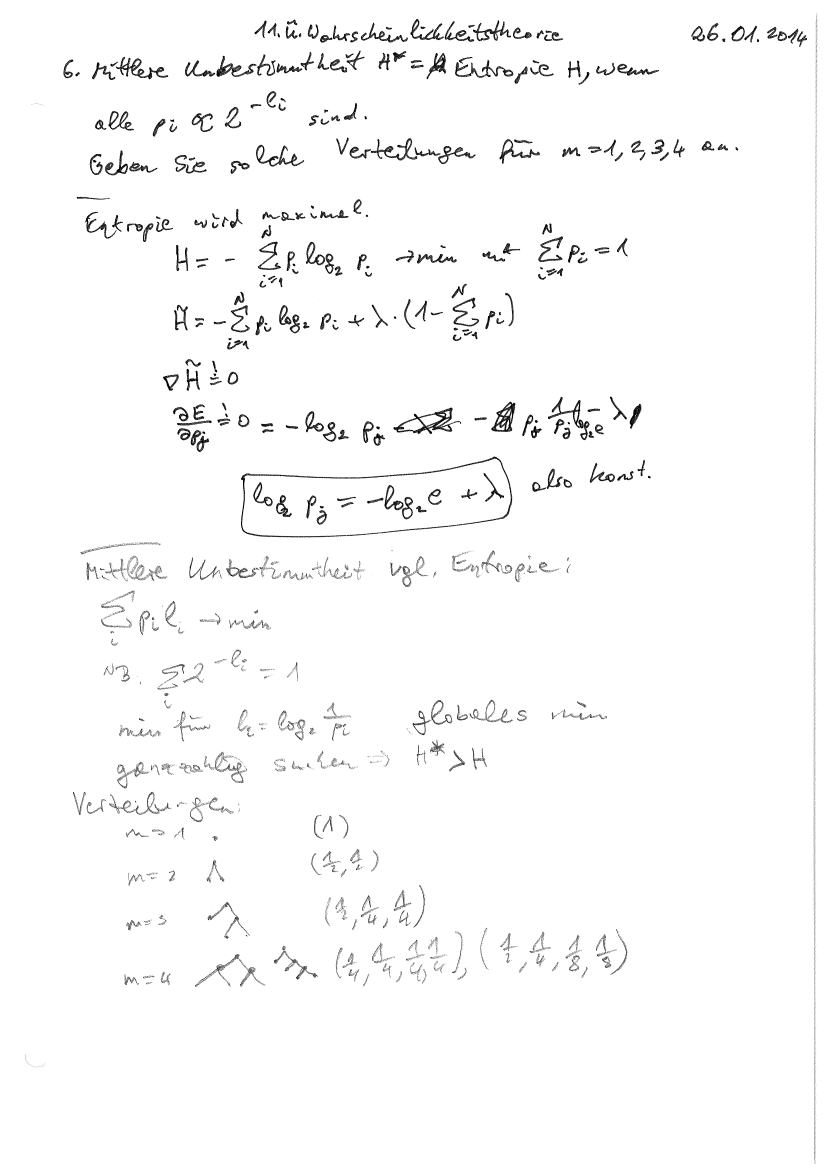 11. Ü. Wahrscheinlichkeitstheorie 26.01.2014
6. Mittlere Unbestimmtheit H* = Entropie H, wenn
alle pi ∝ 2^-li sind.
Geben Sie solche Verteilungen für m=1,2,3,4 an.
Entropie wird maximal.
H = - ∑_{i=1}^N p_i log₂ p_i → min mit ∑_{i=1}^N p_i = 1
H̃ = - ∑_{i=1}^N p_i log₂ p_i + λ·(1 - ∑_{i=1}^N p_i)
∇H̃ =! 0
∂E/∂p_j =! 0 = -log₂ p_j - p_j 1/p_j log₂e - λ
log₂ p_j = -log₂e + λ also konst.
Mittlere Unbestimmtheit vgl. Entropie:
∑_i p_i l_i → min
NB. ∑_i 2^-li = 1
min für l_i = log₂ 1/p_i globales min
ganzzahlig suchen ⇒ H* > H
Verteilungen:
m=1 . (1)
m=2 (1/2, 1/2)
m=3 (1/2, 1/4, 1/4)
m=4 (1/4, 1/4, 1/4, 1/4), (1/2, 1/4, 1/8, 1/8)